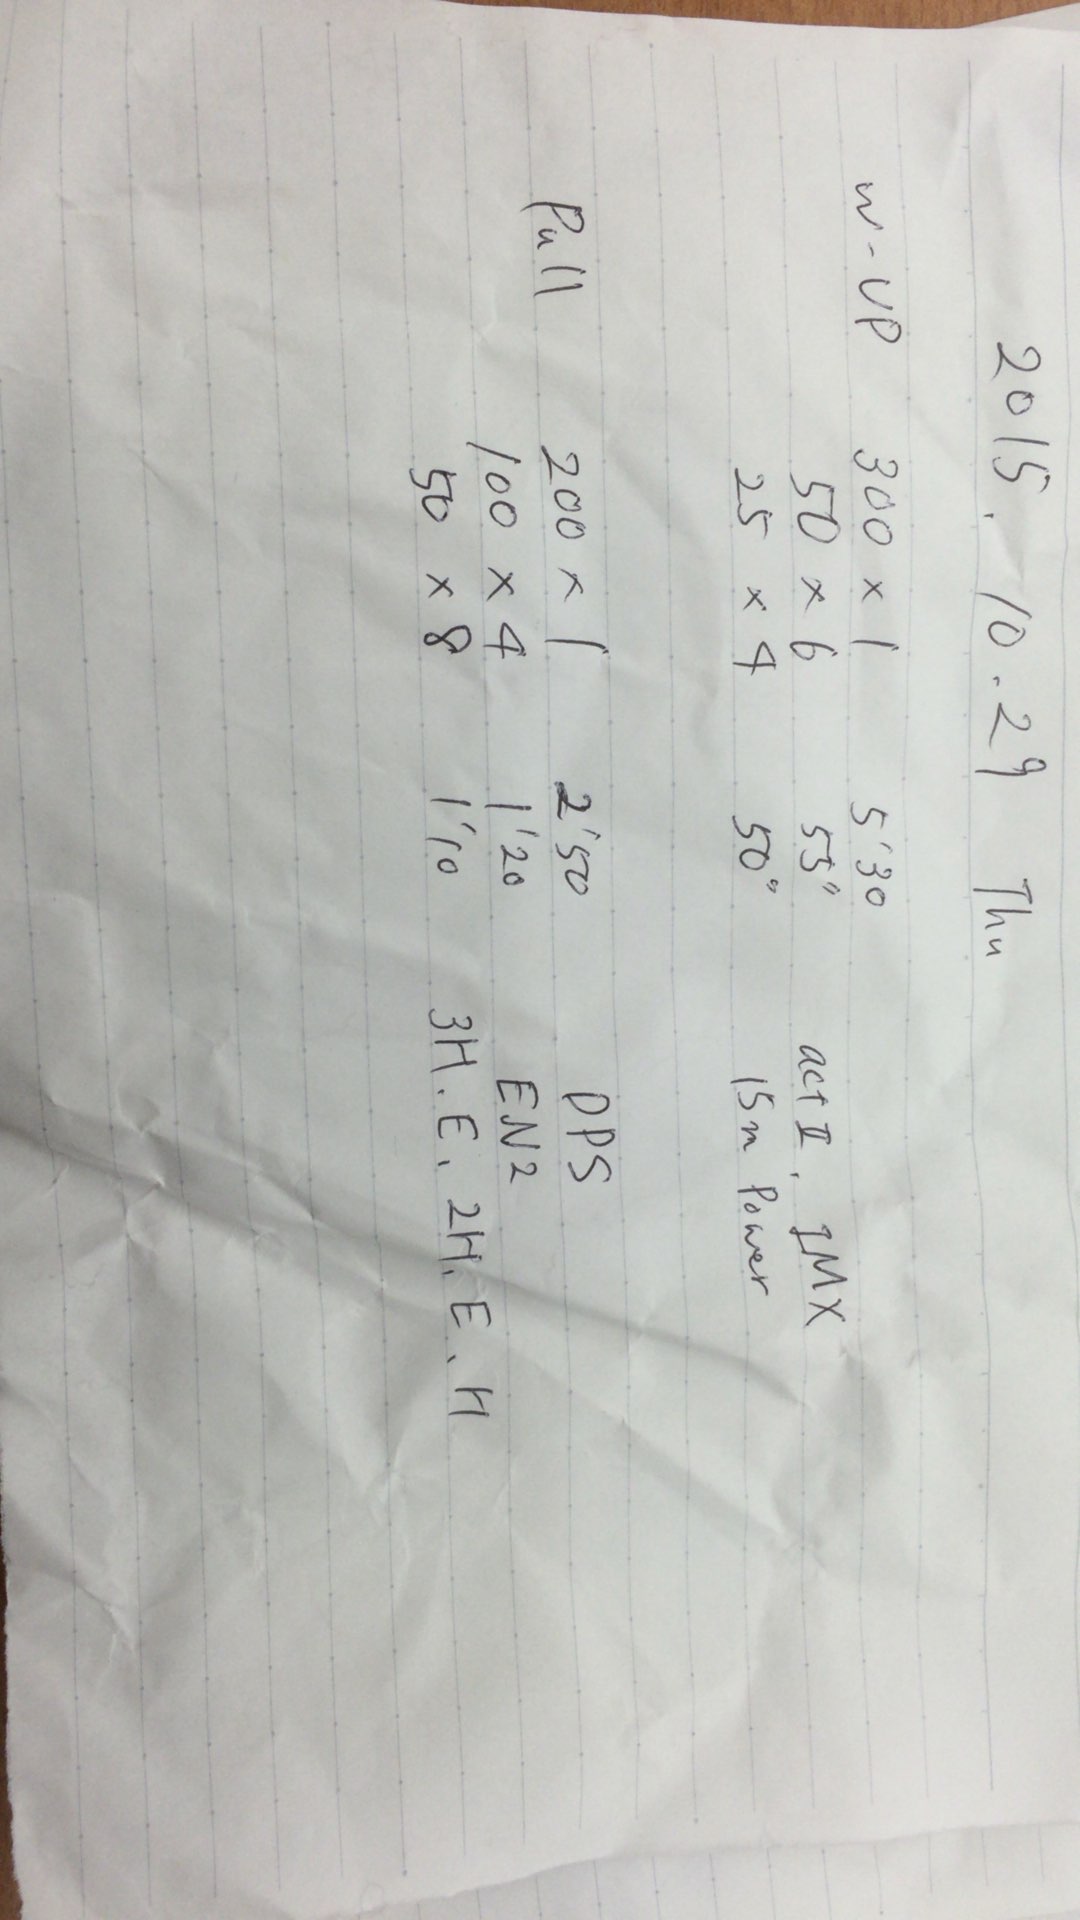 2015. 10.29 Thu
W-UP 300 × 1 5'30
50 × 6 55" act II, IMX
25 × 4 50" 15m Power
Pull 200 × 1 2'50 DPS
100 × 4 1'20 EN2
50 × 8 1'10 3H.E.2H.E.H